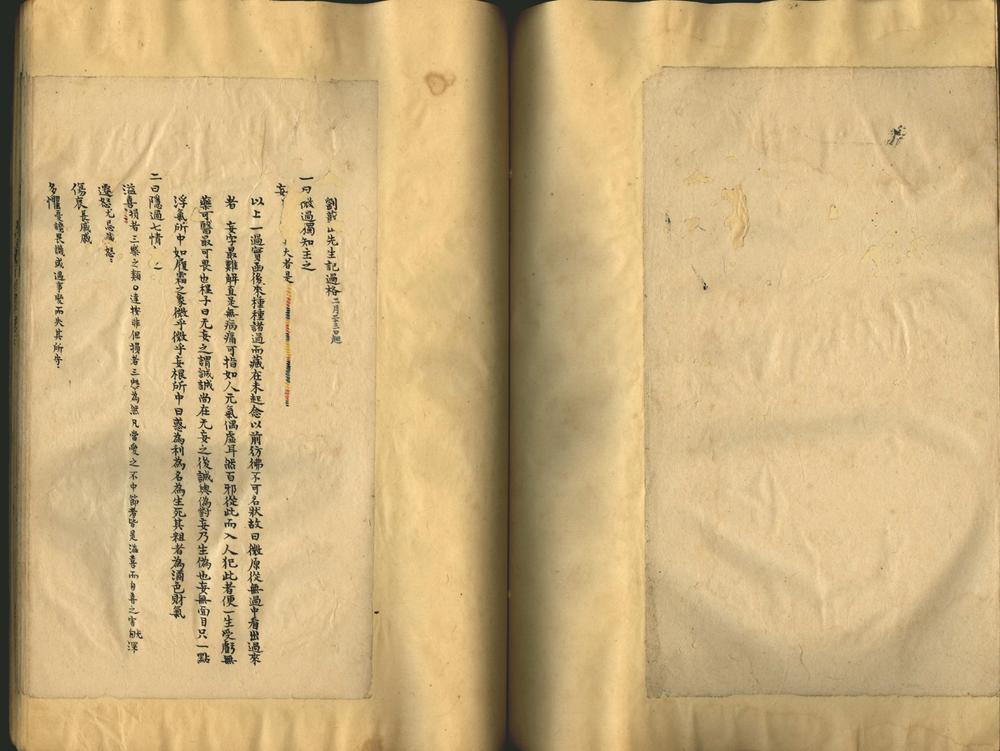 劉蕺山先生記過格二月廿三日起
一曰微過獨知主之
妄 大者是
以上一過實函後來種種諸過而藏在未起念以前彷彿不可名狀故曰微原從無過中看出過來
者 妄字最難解直是無病痛可指如人元氣偶虛耳然百邪從此而入人犯此者便一生受虧無
藥可醫最可畏也程子曰无妄之謂誠誠尚在无妄之後誠與偽對妄乃生偽也妄無面目只一點
浮氣所中如履霜之象微乎微乎妄根所中曰惑為利為名為生死其粗者為酒色財氣
二曰隱過七情 之
溢喜損者三樂之類 凡當愛之不中節者皆是溢喜而自喜之害
遷怒尤忌 怒
傷哀長戚戚
多懼憂讒畏譏或遇事變而失其所守